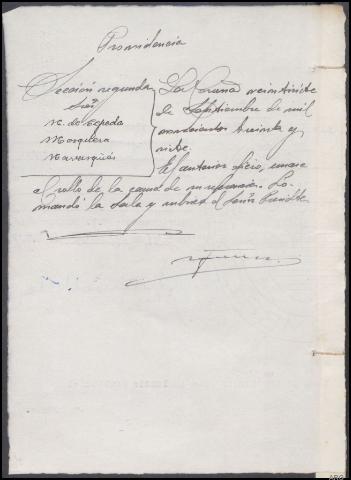 Providencia
Sección segunda
Señ
M. de Cepeda
Mosquera
Marresqués
La Coruña veintisiete
de Septiembre de mil
novecientos treinta y
siete.
El anterior oficio, únase
al rollo de la causa de su referencia. Lo
mandó la Sala y rubrica el Señor Presidte